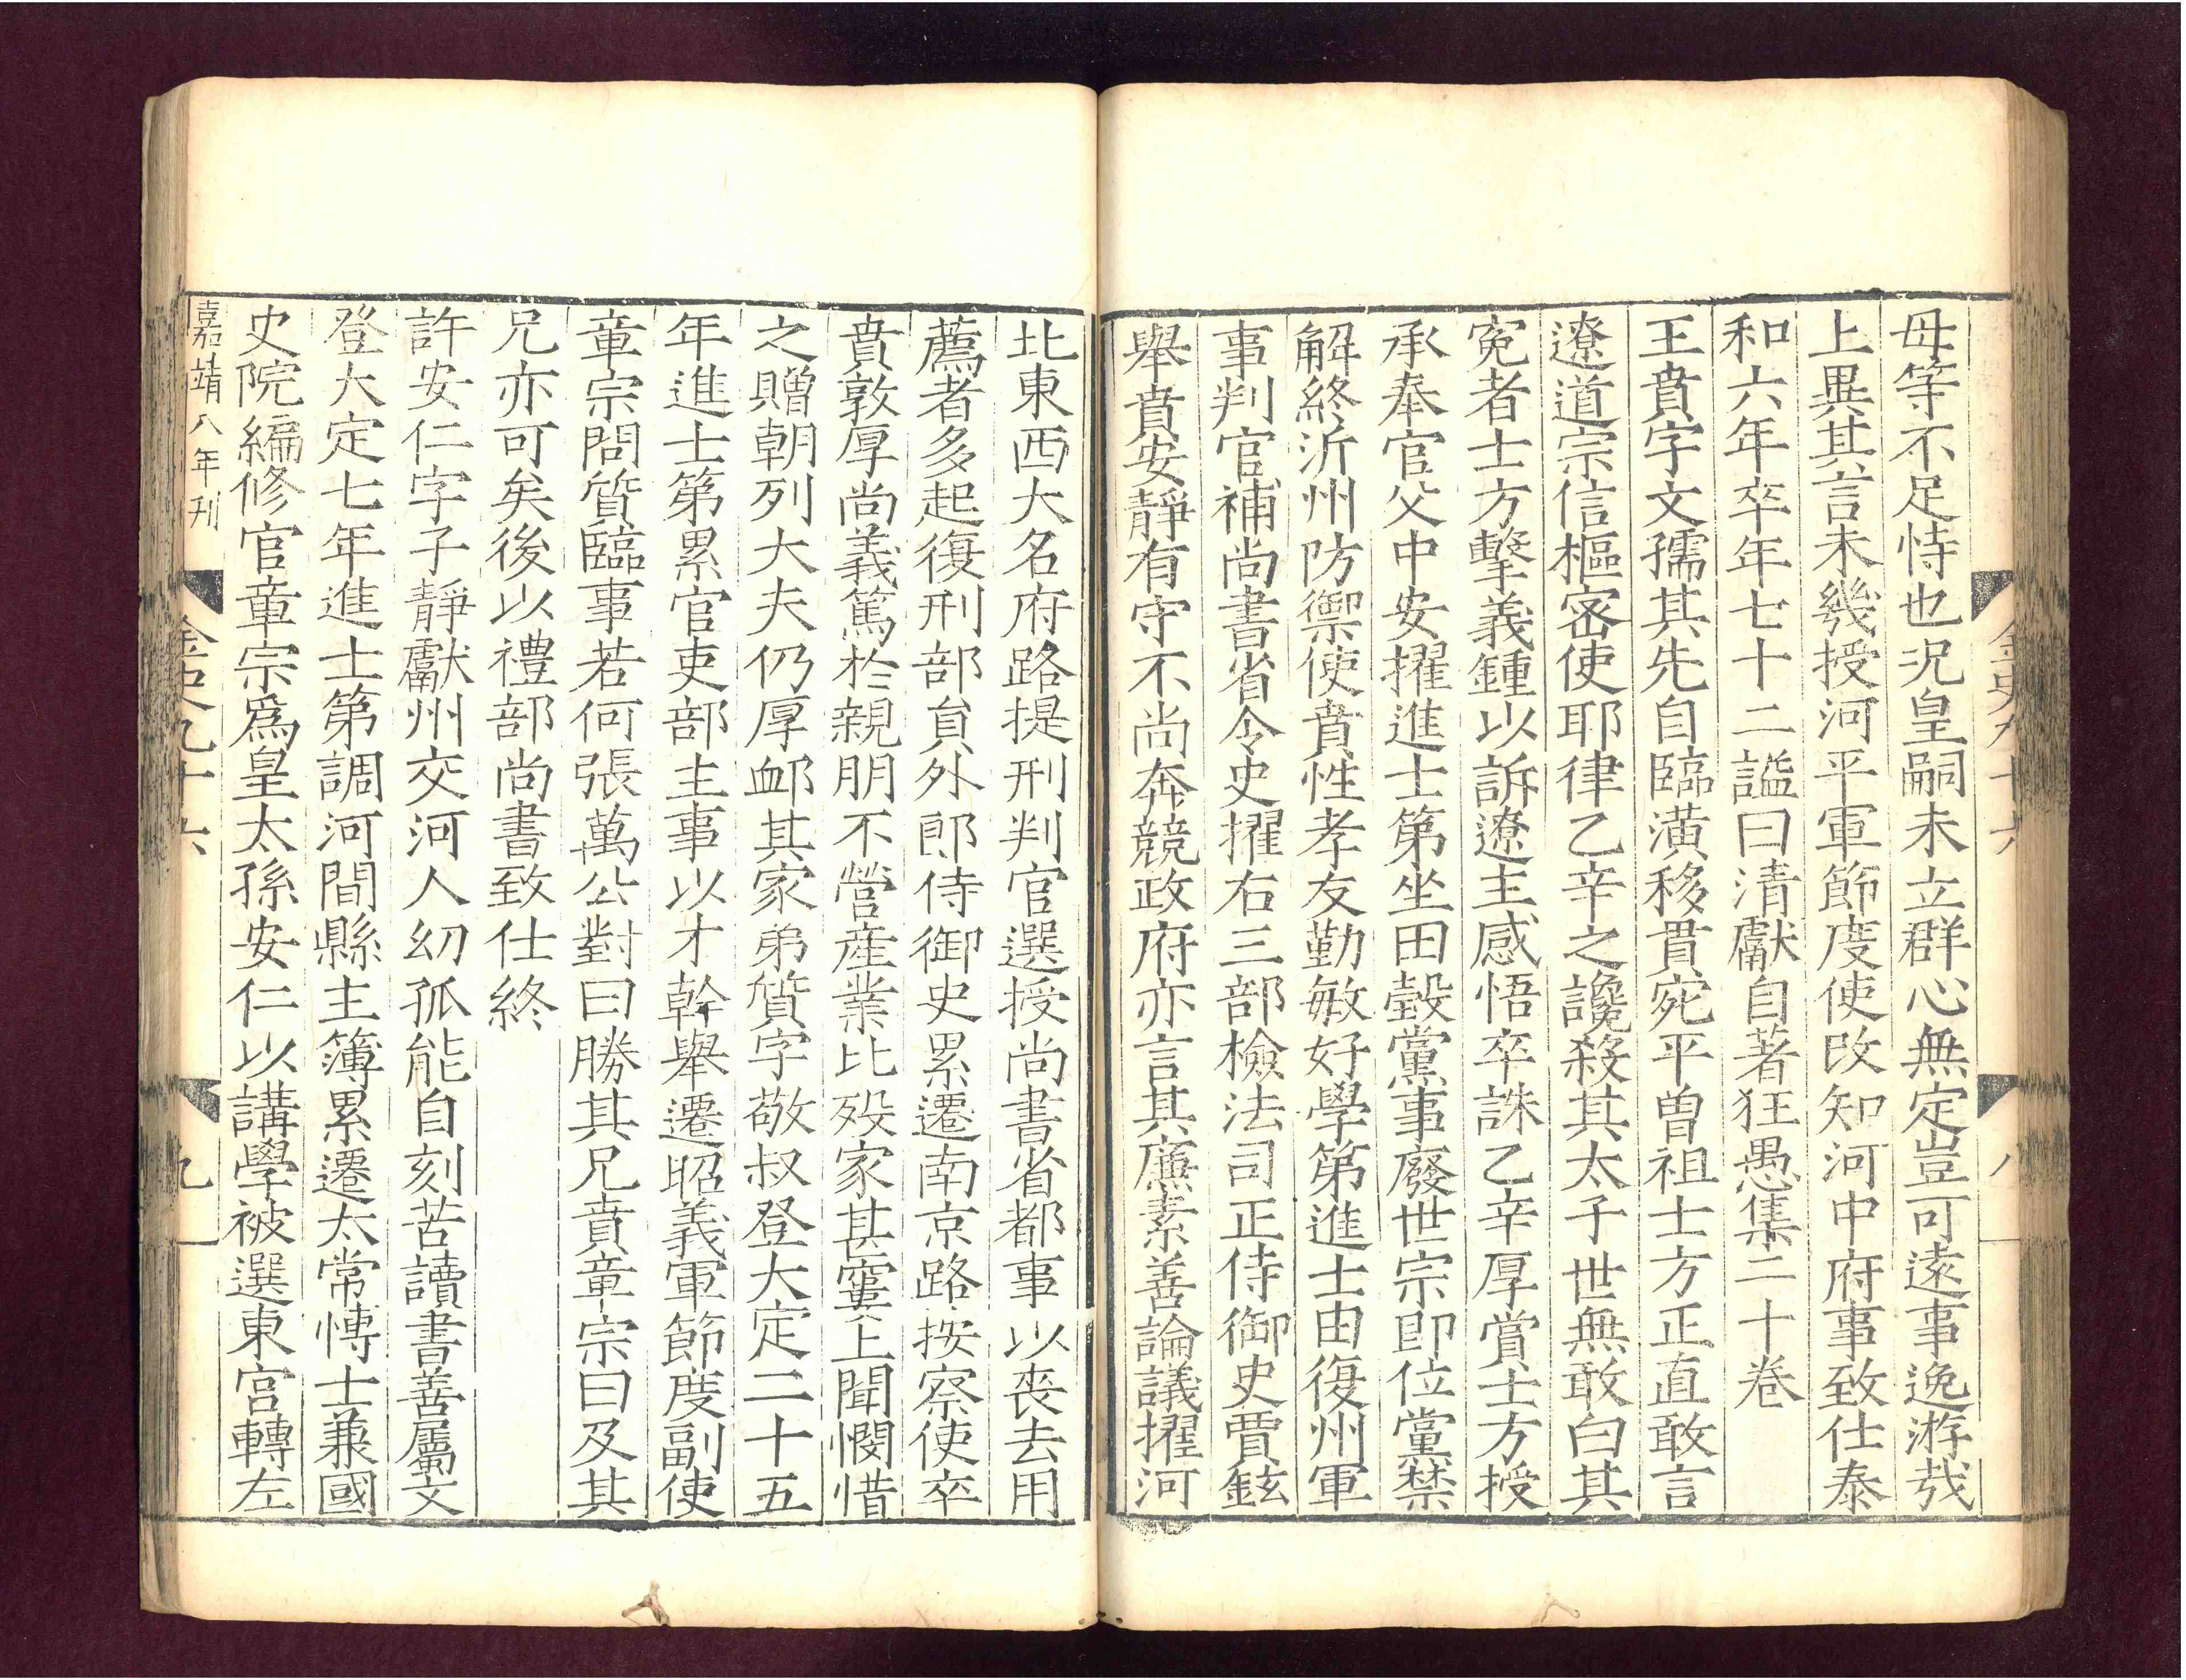 金史九十六
八
母等不足恃也况皇嗣未立群心無定豈可遠事逸游㦲
上異其言未幾授河平軍節度使改知河中府事致仕泰
和六年卒年七十二諡曰清獻自著狂愚集二十卷
王賁字文孺其先自臨潢移貫宛平曾祖士方正直敢言
遼道宗信樞密使耶律乙辛之讒殺其太子世無敢白其
寃者士方擊義鍾以訴遼主感悟卒誅乙辛厚賞士方授
承奉官父中安擢進士第坐田瑴黨事廢世宗即位黨禁
解終沂州防禦使賁性孝友勤敏好學第進士由復州軍
事判官補尚書省令史擢右三部檢法司正侍御史賈鉉
舉賁安靜有守不尚奔競政府亦言其廉素善論議擢河
北東西大名府路提刑判官選授尚書省都事以喪去用
薦者多起復刑部貟外郎侍御史累遷南京路按察使卒
賁敦厚尚義篤於親朋不營産業比殁家甚窶上聞憫惜
之贈朝列大夫仍厚衈其家弟質字敬叔登大定二十五
年進士第累官吏部主事以才幹舉遷昭義軍節度副使
章宗問質臨事若何張萬公對曰勝其兄賁章宗曰及其
兄亦可矣後以禮部尚書致仕終
許安仁字子靜獻州交河人幼孤能自刻苦讀書善屬文
登大定七年進士第調河間縣主簿累遷太常愽士兼國
史院編修官章宗爲皇太孫安仁以講學被選東宮轉左
嘉靖八年刊
金史九十六
九